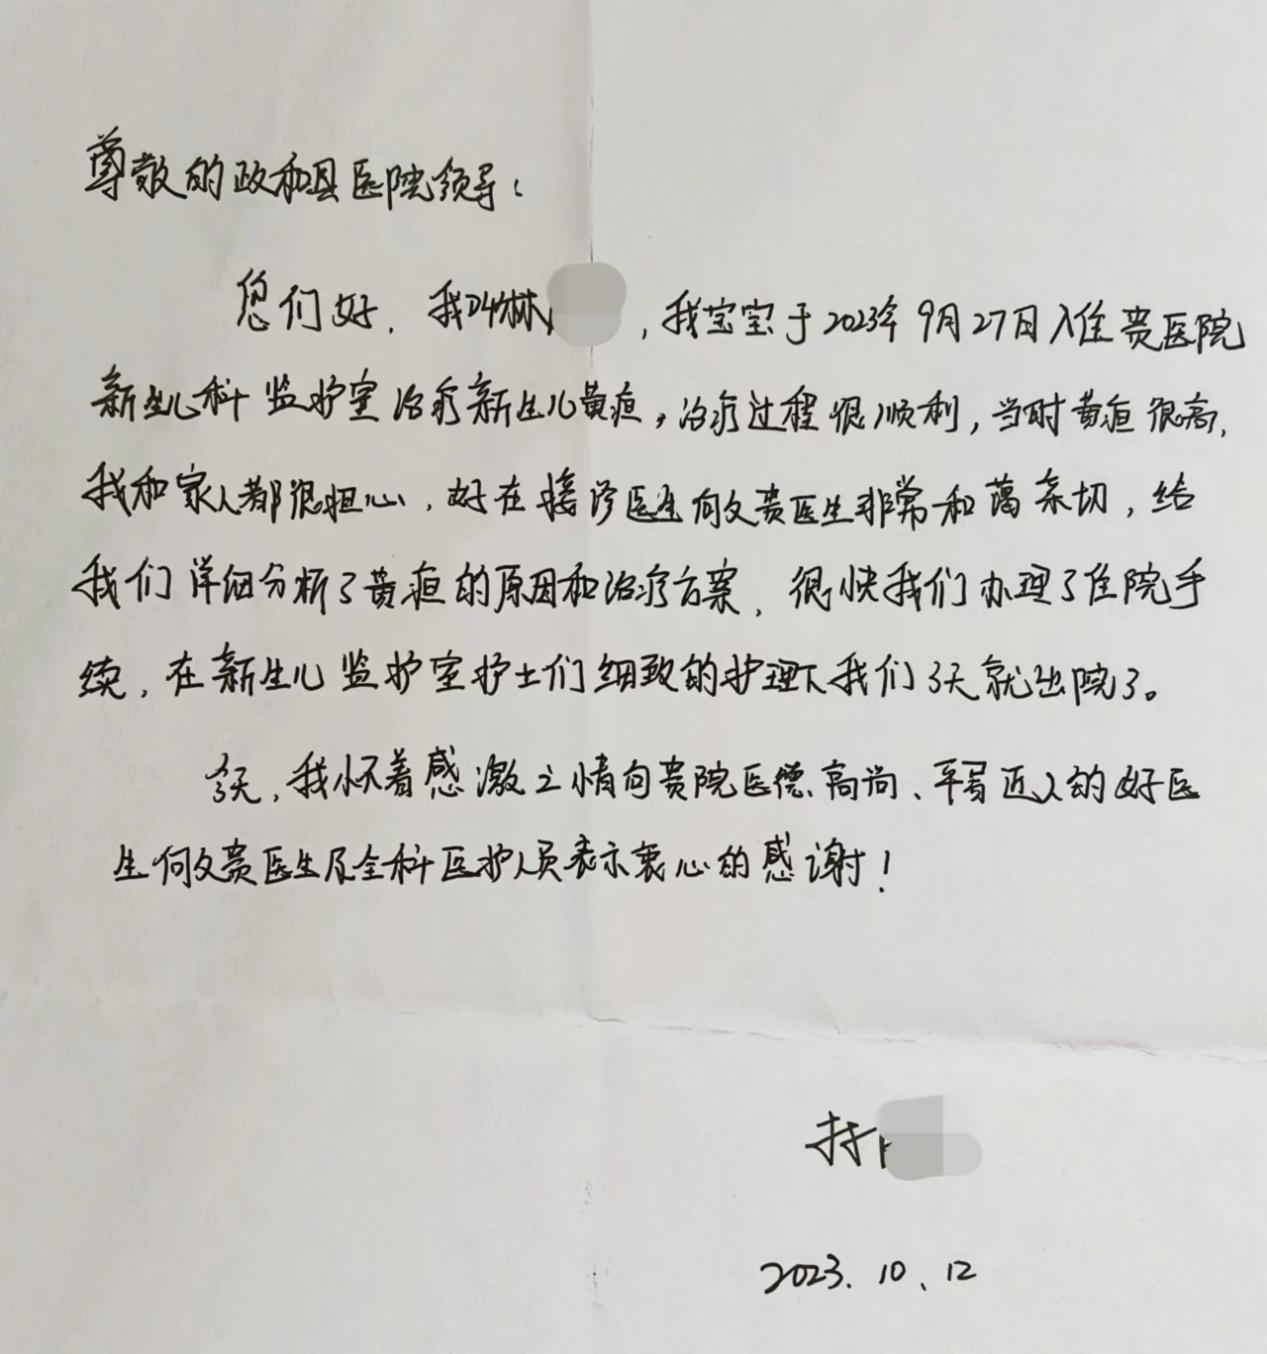 尊敬的政和县医院领导：
您们好，我叫林，我宝宝于2023年9月27日入住贵医院
新生儿科监护室治疗新生儿黄疸，治疗过程很顺利，当时黄疸很高，
我和家人都很担心，好在接诊医生何文贵医生非常和蔼亲切，给
我们详细分析了黄疸的原因和治疗方案，很快我们办理了住院手
续，在新生儿监护室护士们细致的护理下我们3天就出院了。
今天，我怀着感激之情向贵院医德高尚、平易近人的好医
生何文贵医生及全科医护人员表示衷心的感谢！
林
2023.10.12